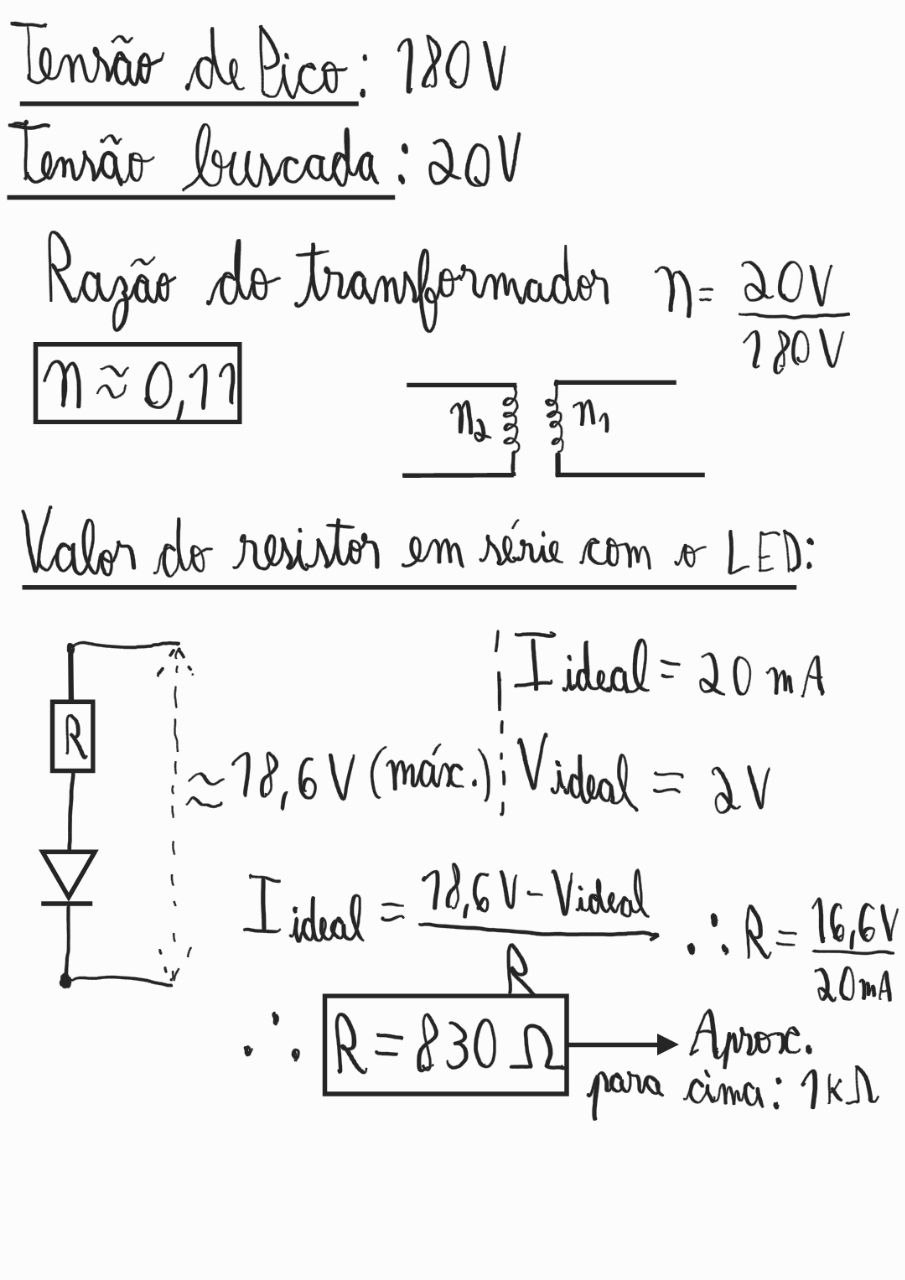 Tensão de Pico: 180V
Tensão buscada: 20V
Razão do transformador n = 20V / 180V
n ≈ 0,11
n₂ n₁
Valor do resistor em série com o LED:
I ideal = 20 mA
R
≈ 18,6 V (máx.) V ideal = 2V
I ideal = 18,6 V - V ideal / R ∴ R = 16,6V / 20mA
∴ R = 830 Ω → Aprox.
para cima: 1kΩ